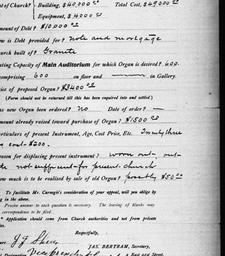 of Church? Building, $40,000 00 Total Cost, $49000 00
Equipment, $ 9000 00
Amount of Debt? $10000 00
How is Debt provided for? Note and mortgage
Church built of? Granite
Seating Capacity of Main Auditorium for which Organ is desired? 600.
Comprising 600 on floor and in Gallery.
Price of proposed Organ? $3400 00
(Form should not be returned till this has been required into and settled.)
Has new Organ been ordered? No Date of order?
Amount already raised toward purchase of Organ? $1500 00
Particulars of present Instrument, Age, Cost Price, Etc. Twenty three
cost $200.
Reason for displacing present instrument? worn out
not sufficient for present Church
How much is to be realised by sale of old Organ? possibly $50 00
To facilitate Mr. Carnegie's consideration of your appeal, will you oblige by
filling in the above.
Precise answer to each question is necessary. The leaving of blanks may
correspondence to be filed.
Application should come from Church authorities and not from private
Respectfully,
JAS. BERTRAM, Secretary,